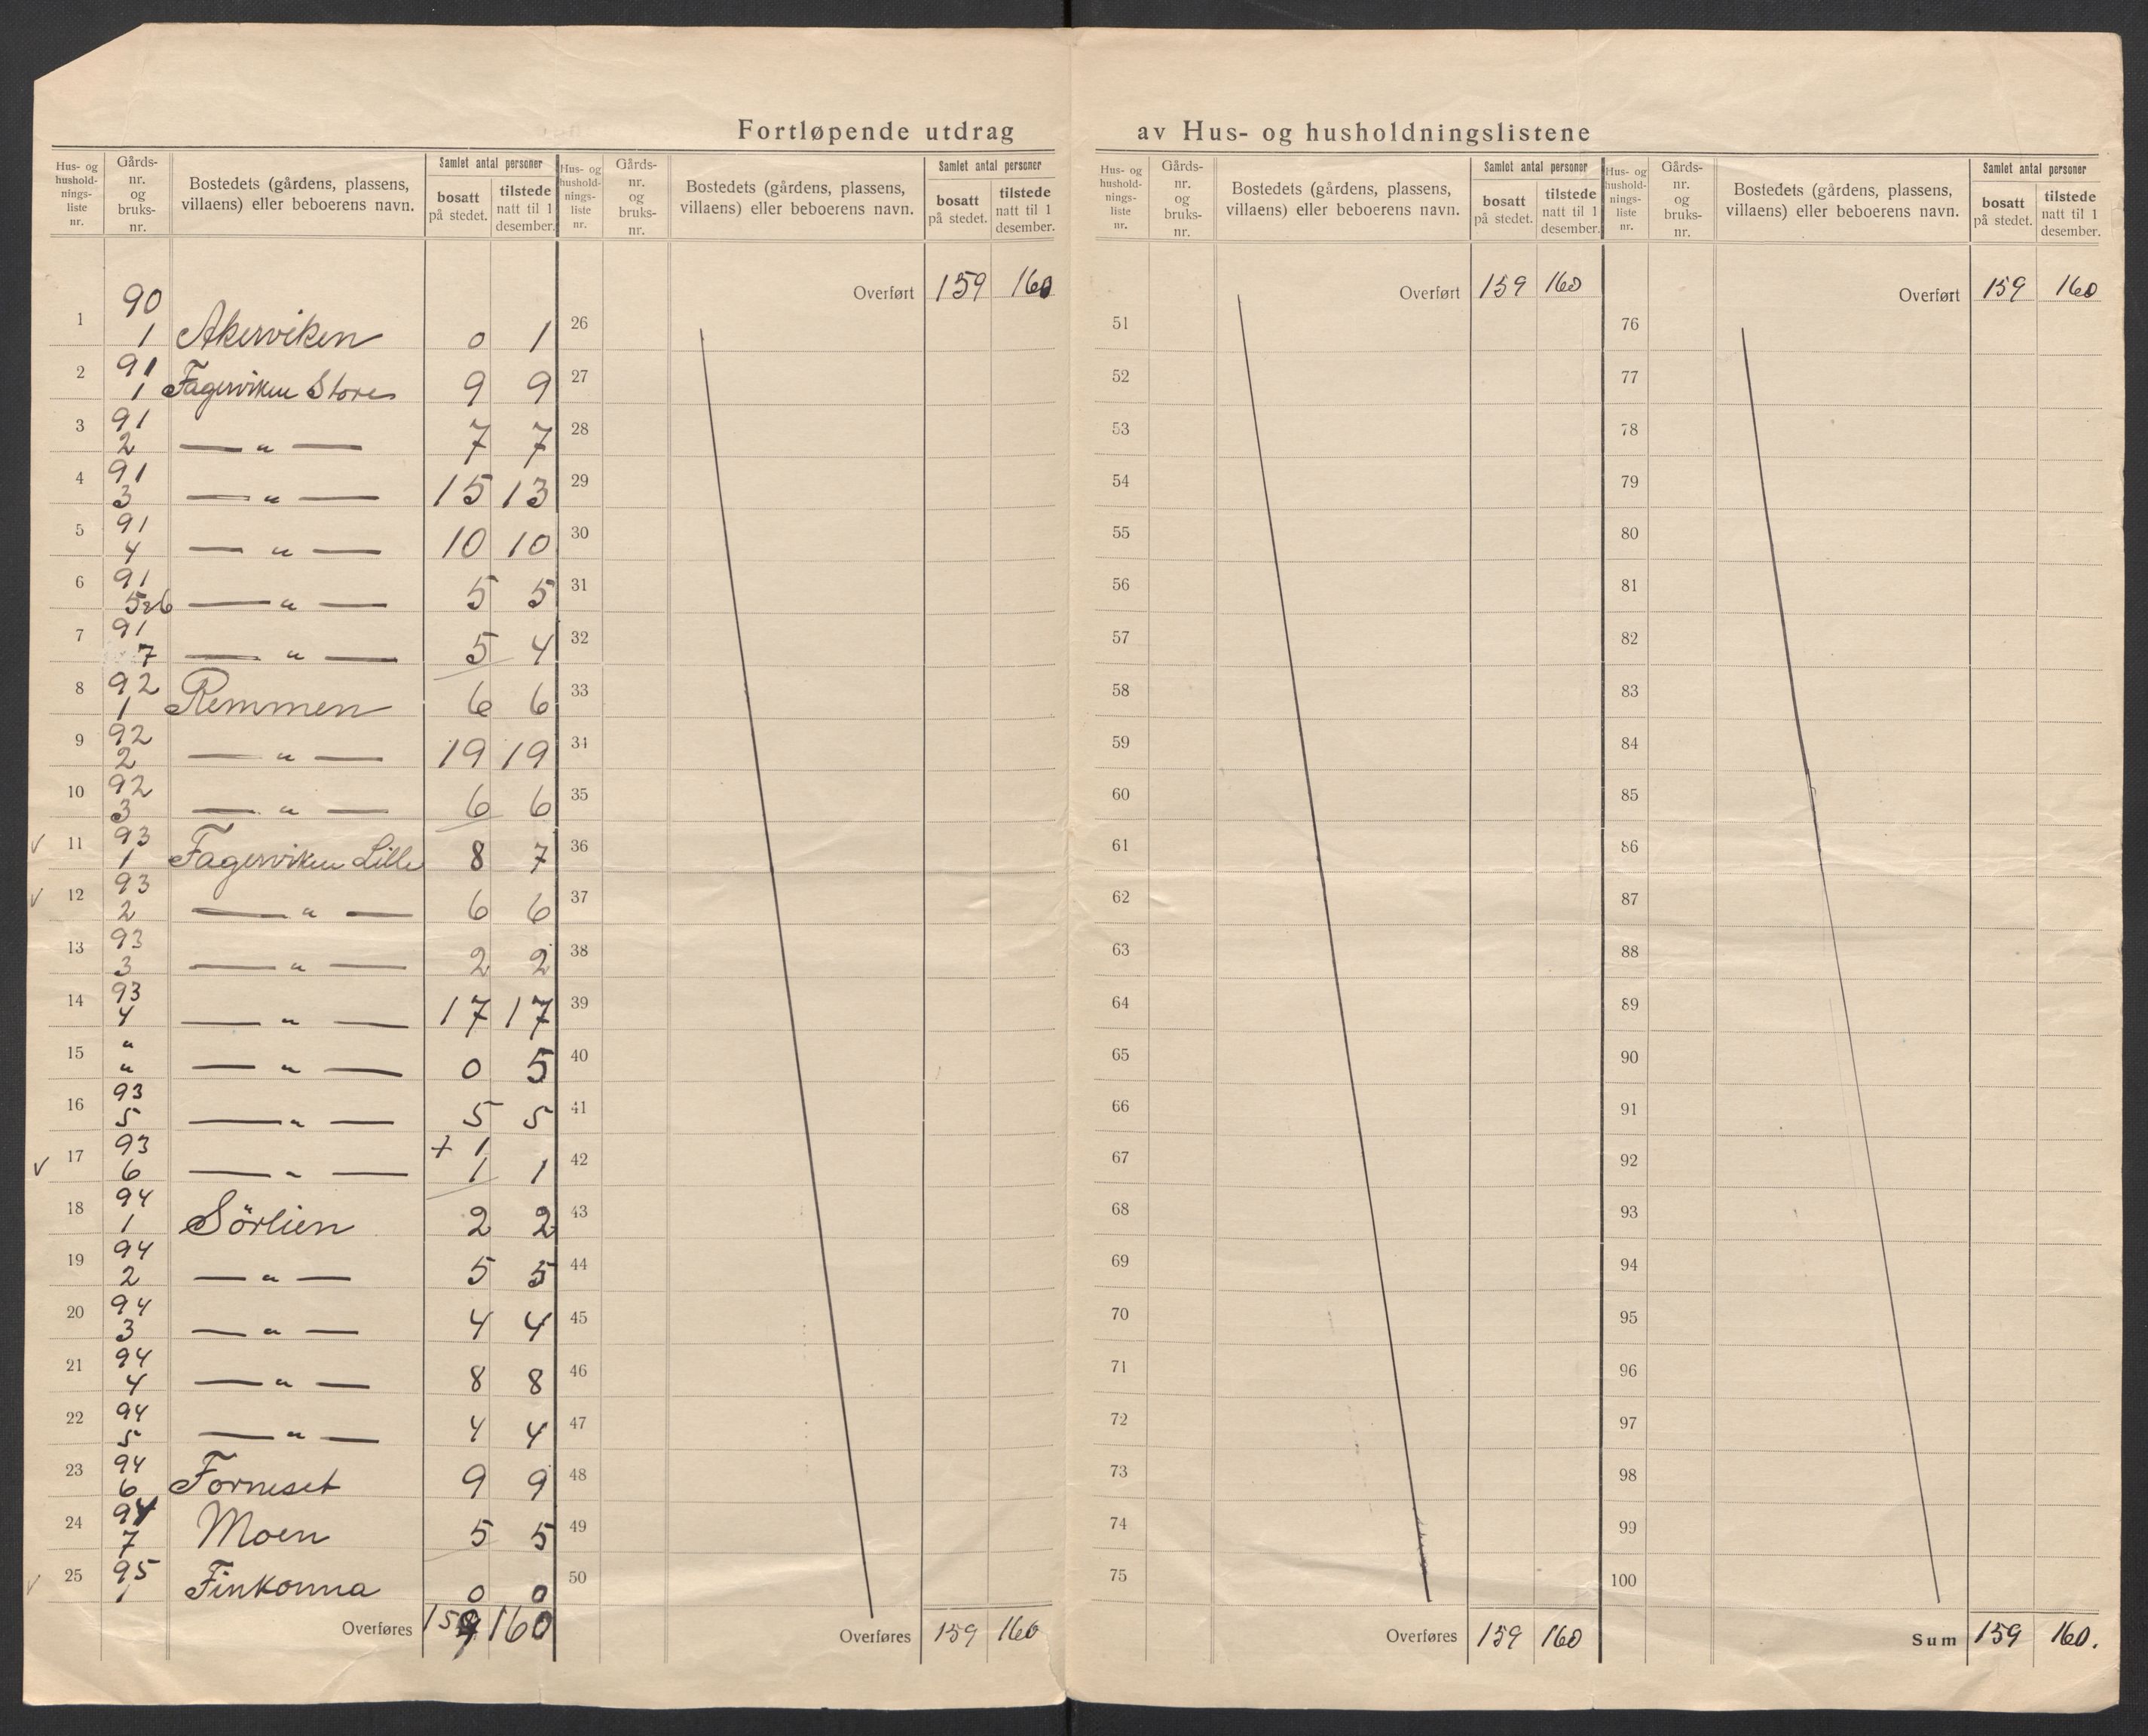 Fortløpende utdrag av Hus- og husholdningslistene
Hus- og hushold-nings-liste nr. | Gårds-nr. og bruks-nr. | Bostedets (gårdens, plassens, villaens) eller beboerens navn. | Samlet antal personer | bosatt på stedet. | tilstede natt til 1 desember.
Hus- og hushold-nings-liste nr. | Gårds-nr. og bruks-nr. | Bostedets (gårdens, plassens, villaens) eller beboerens navn. | Samlet antal personer | bosatt på stedet. | tilstede natt til 1 desember.
Hus- og hushold-nings-liste nr. | Gårds-nr. og bruks-nr. | Bostedets (gårdens, plassens, villaens) eller beboerens navn. | Samlet antal personer | bosatt på stedet. | tilstede natt til 1 desember.
Hus- og hushold-nings-liste nr. | Gårds-nr. og bruks-nr. | Bostedets (gårdens, plassens, villaens) eller beboerens navn. | Samlet antal personer | bosatt på stedet. | tilstede natt til 1 desember.
1 90 1 Akerviken 0 1
2 91 1 Fagerviken Store 9 9
3 91 2 — " — 7 7
4 91 3 — " — 15 13
5 91 4 — " — 10 10
6 91 5 & 6 — " — 5 5
7 91 7 — " — 5 4
8 92 1 Remmen 6 6
9 92 2 — " — 19 19
10 92 3 — " — 6 6
✓ 11 93 1 Fagerviken Lille 8 7
✓ 12 93 2 — " — 6 6
13 93 3 — " — 2 2
14 93 4 — " — 17 17
15 " " — " — 0 5
16 93 5 — " — 5 5
✓ 17 93 6 — " — + 1 1 1
18 94 1 Sörlien 2 2
19 94 2 — " — 5 5
20 94 3 — " — 4 4
21 94 4 — " — 8 8
22 94 5 — " — 4 4
23 94 6 Forneset 9 9
24 94 7 Moen 5 5
✓ 25 95 1 Finkonna 0 0
Overføres 159 160
Overført 159 160
26
27
28
29
30
31
32
33
34
35
36
37
38
39
40
41
42
43
44
45
46
47
48
49
50
Overføres 159 160
Overført 159 160
51
52
53
54
55
56
57
58
59
60
61
62
63
64
65
66
67
68
69
70
71
72
73
74
75
Overføres 159 160
Overført 159 160
76
77
78
79
80
81
82
83
84
85
86
87
88
89
90
91
92
93
94
95
96
97
98
99
100
Sum 159 160.